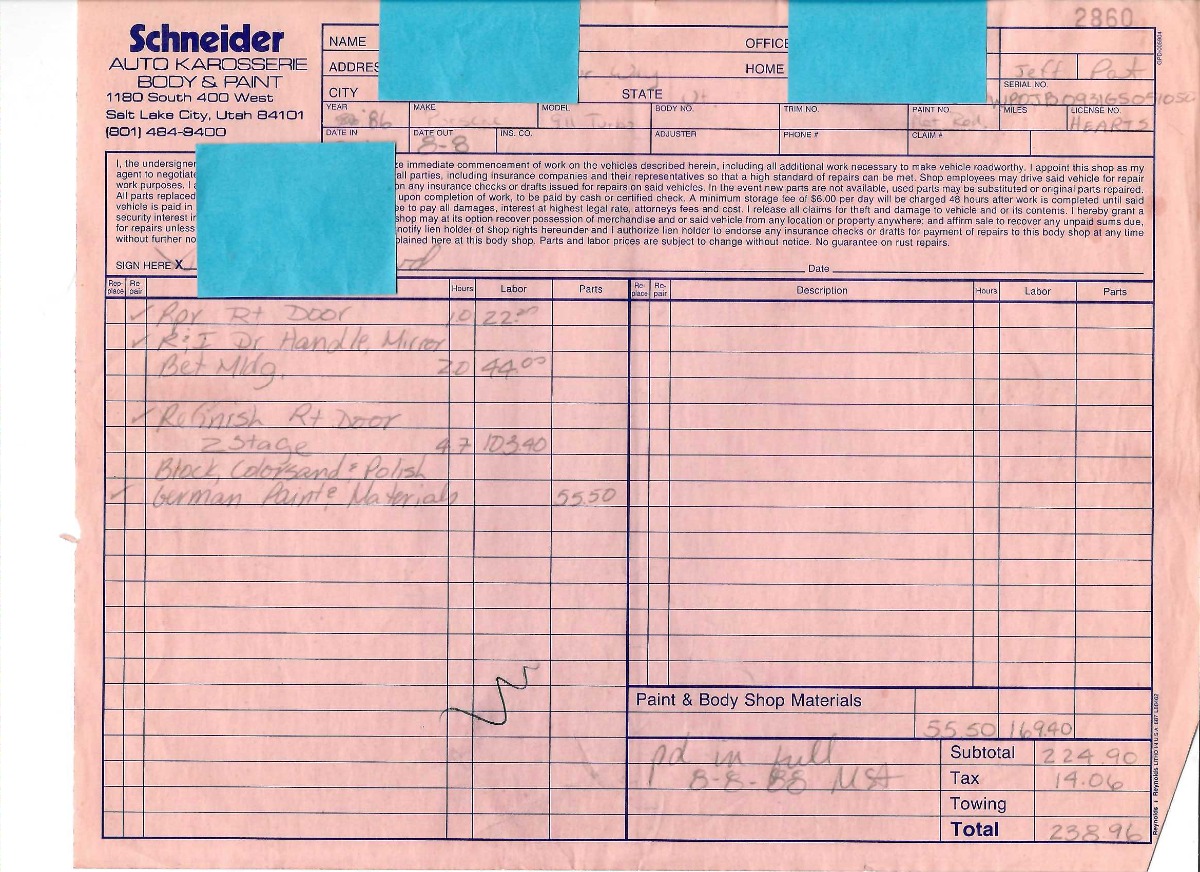 2860
Schneider
AUTO KAROSSERIE
BODY & PAINT
1180 South 400 West
Salt Lake City, Utah 84101
(801) 484-9400
NAME
OFFICE
ADDRES
HOME
Jeff Pat
CITY
STATE Ut
SERIAL NO.
YEAR MAKE MODEL BODY NO. TRIM NO. PAINT NO. MILES LICENSE NO.
'86 Porsche 911 Turbo HEARTS
DATE IN DATE OUT INS. CO. ADJUSTER PHONE # CLAIM #
8-8
I, the undersigne
e immediate commencement of work on the vehicles described herein, including all additional work necessary to make vehicle roadworthy. I appoint this shop as my
agent to negotiate
all parties, including insurance companies and their representatives so that a high standard of repairs can be met. Shop employees may drive said vehicle for repair
work purposes. I a
on any insurance checks or drafts issued for repairs on said vehicles. In the event new parts are not available, used parts may be substituted or original parts repaired.
All parts replaced
upon completion of work, to be paid by cash or certified check. A minimum storage fee of $6.00 per day will be charged 48 hours after work is completed until said
vehicle is paid in
e to pay all damages, interest at highest legal rate, attorneys fees and cost. I release all claims for theft and damage to vehicle and or its contents. I hereby grant a
security interest in
shop may at its option recover possession of merchandise and or said vehicle from any location or property anywhere: and affirm sale to recover any unpaid sums due,
for repairs unless
notify lien holder of shop rights hereunder and I authorize lien holder to endorse any insurance checks or drafts for payment of repairs to this body shop at any time
without further no
plained here at this body shop. Parts and labor prices are subject to change without notice. No guarantee on rust repairs.
SIGN HERE X Date
Re-place Re-pair Hours Labor Parts Re-place Re-pair Description Hours Labor Parts
✓ Rpr Rt Door 1.0 22.00
✓ R&I Dr Handle, Mirror
Belt Mldg. 2.0 44.00
✓ Refinish Rt Door
2 Stage 4.7 103.40
Block, Colorsand & Polish
✓ German Paint & Materials 55.50
Paint & Body Shop Materials
55.50 169.40
pd in full
8-8-88
Subtotal 224.90
Tax 14.06
Towing
Total 238.96